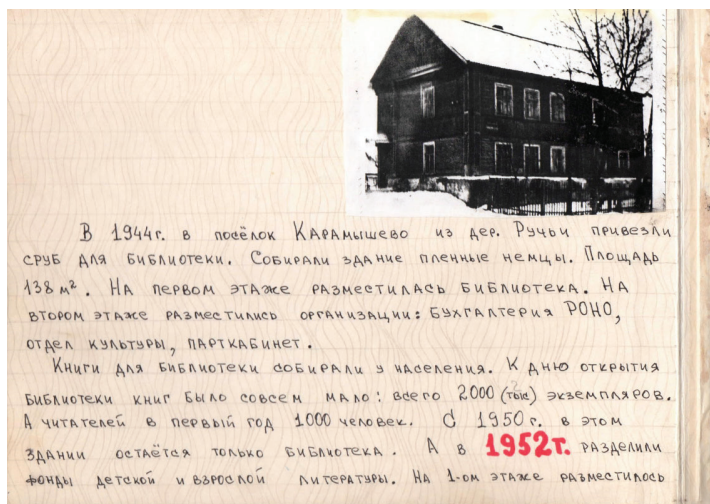 В 1944г. в посёлок Карамышево из дер. Ручьи привезли
сруб для библиотеки. Собирали здание пленные немцы. Площадь
138 м². На первом этаже разместилась библиотека. На
втором этаже разместились организации: бухгалтерия РОНО,
отдел культуры, парткабинет.
Книги для библиотеки собирали у населения. К дню открытия
библиотеки книг было совсем мало: всего 2000 (тыс) экземпляров.
А читателей в первый год 1000 человек. С 1950г. в этом
здании остаётся только библиотека. А в 1952г. разделили
фонды детской и взрослой литературы. На 1-ом этаже разместилось